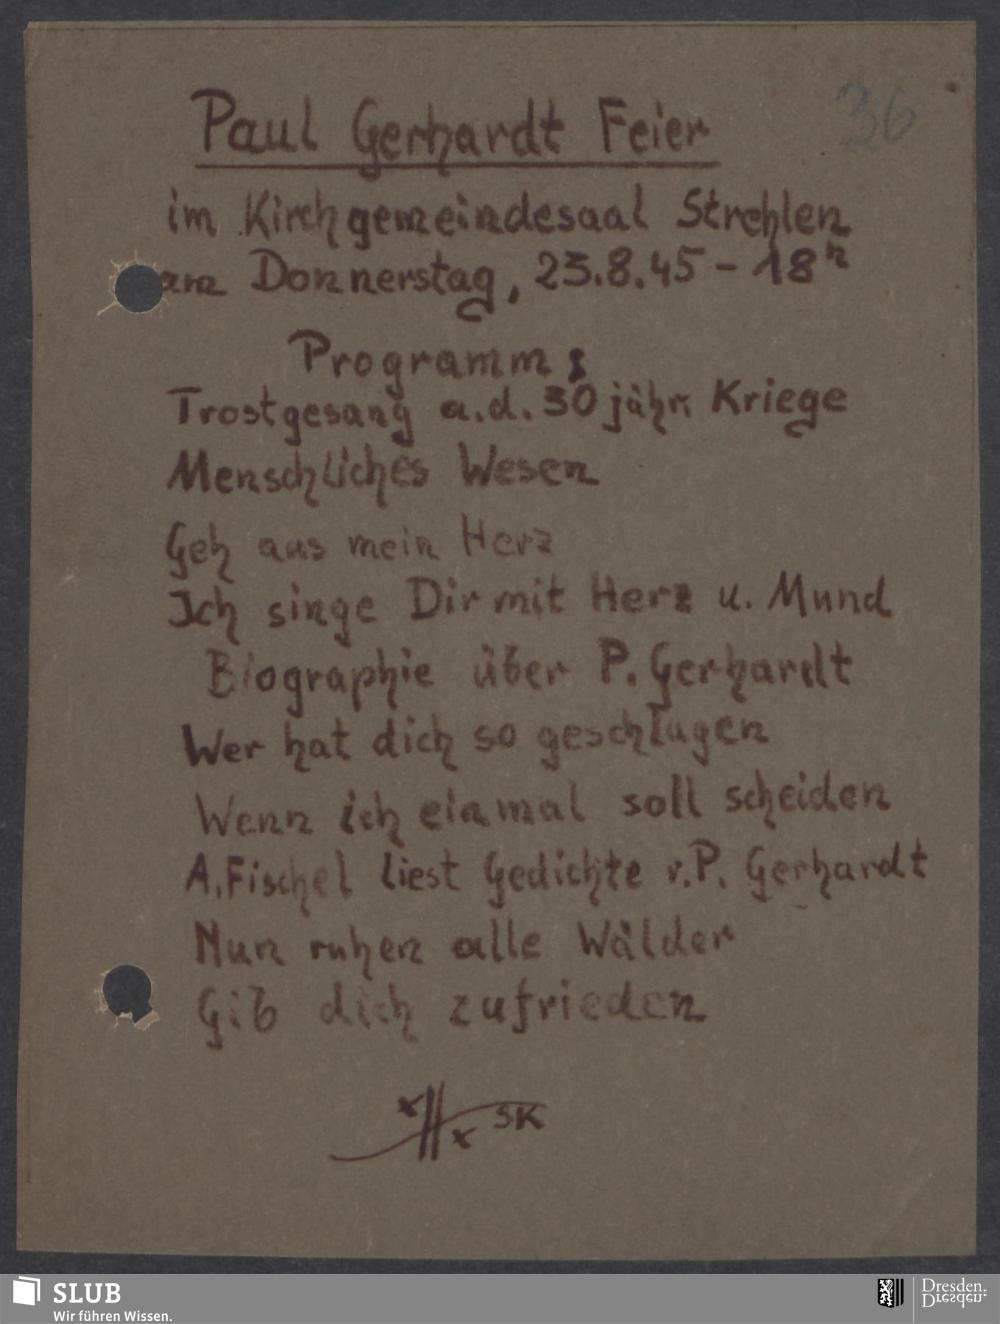 36
Paul Gerhardt Feier
im Kirchgemeindesaal Strehlen
am Donnerstag, 23.8.45 - 18h
Programm:
Trostgesang a.d. 30jähr. Kriege
Menschliches Wesen
Geh aus mein Herz
Ich singe Dir mit Herz u. Mund
Biographie über P. Gerhardt
Wer hat dich so geschlagen
Wenn ich einmal soll scheiden
A. Fischel liest Gedichte v. P. Gerhardt
Nun ruhen alle Wälder
Gib dich zufrieden
SK
SLUB
Wir führen Wissen.
Dresden.
Dresden.